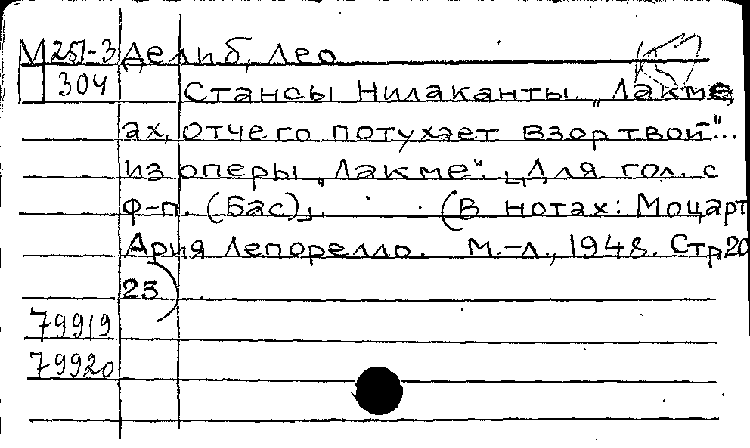 М251-3 Делиб, Лео
304 Стансы Нилаканты „Лакме,
ах, отчего потухает взор твой"...
из оперы „Лакме". [Для гол. с
ф-п. (Бас)]. (В нотах: Моцарт
Ария Лепорелло. М.-Л., 1948. Стр 20
23)
79919
79920